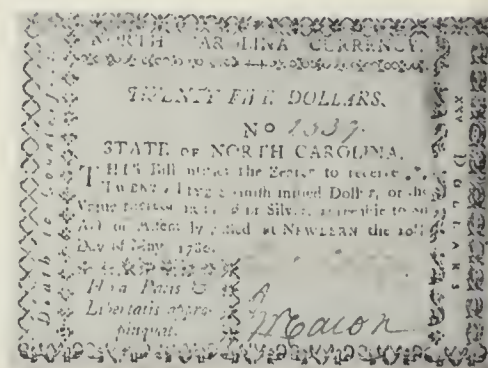 NORTH CAROLINA CURRENCY.
TWENTY FIVE DOLLARS.
No 1337.
STATE OF NORTH CAROLINA.
THIS Bill intitles the Bearer to receive
TWENTY FIVE Spanish milled Dollars, or the
Value thereof in Gold or Silver, agreeable to an
Act of Assembly passed at NEWBERN the
Day of May, 1780.
Hora Pacis &
Libertatis appro-
pinquat.
Macon
Death to Counterfeit
XXV DOLLARS